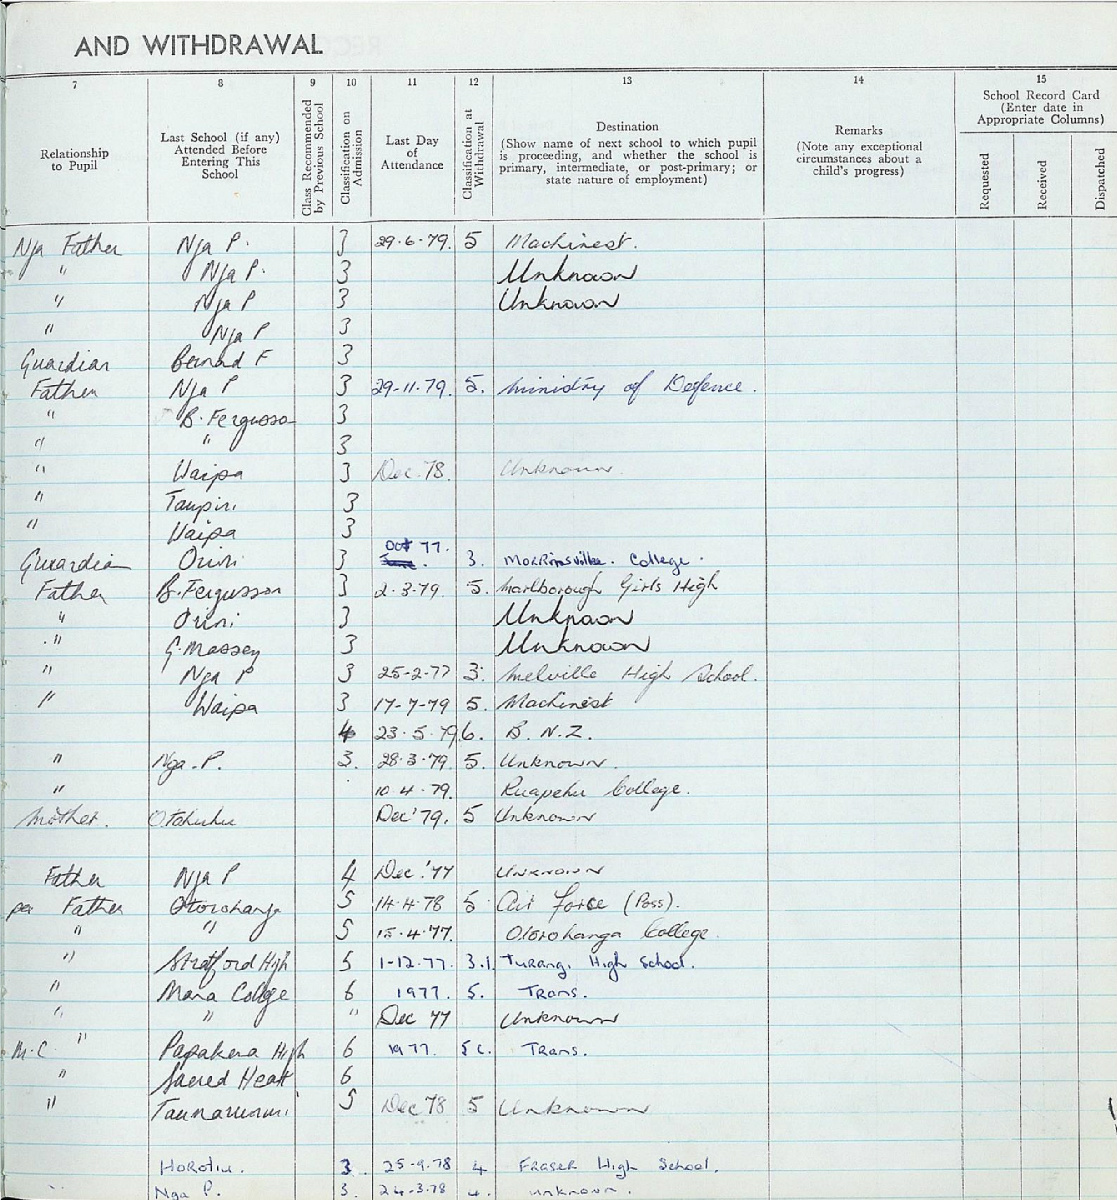 AND WITHDRAWAL
7 8 9 10 11 12 13 14 15
Relationship to Pupil
Last School (if any) Attended Before Entering This School
Class Recommended by Previous School
Classification on Admission
Last Day of Attendance
Classification at Withdrawal
Destination
(Show name of next school to which pupil is proceeding, and whether the school is primary, intermediate, or post-primary; or state nature of employment)
Remarks
(Note any exceptional circumstances about a child's progress)
School Record Card
(Enter date in Appropriate Columns)
Requested
Received
Dispatched
Nga Father Nga P. 3 29.6.79. 5 Machinest.
" Nga P. 3 Unknown
" Nga P 3 Unknown
" Nga P 3
Guardian Bernard F 3
Father Nga P 3 29-11-79. 5. Ministry of Defence.
" B. Fergusson 3
" " 3
" Waipa 3 Dec 78. Unknown.
" Taupiri 3
" Waipa 3
Guardian Orini 3 Oct 77. 3. Morrinsville. College.
Father B. Fergusson 3 2.3.79. 5. Marlborough Girls High
" Orini 3 Unknown
" G. Massey 3 Unknown
" Nga P 3 25-2-77 3. Melville High School.
" Waipa 3 17-7-79 5. Machinest
4 23.5.79 6. B.N.Z.
" Nga.P. 3. 28.3.79. 5. Unknown.
" 10.4.79. Ruapehu College.
Mother. Otahuhu Dec '79. 5 Unknown
Father Nga P 4 Dec. '77 Unknown
per Father Otorohanga 5 14.4.78 5 Air Force (Poss).
" " 5 15.4.77. Otorohanga College.
" Stratford High 5 1-12-77. 3.1. Turang. High School.
" Mana College 6 1977. 5. Trans.
" " " Dec 77 Unknown
M.C. " Papakura High 6 1977. 5C. Trans.
" Sacred Heart 6
" Taumarunui 5 Dec 78 5 Unknown
Horotiu. 3. 25.9.78 4 Fraser High School.
Nga P. 3. 24.3.78 4. Unknown.